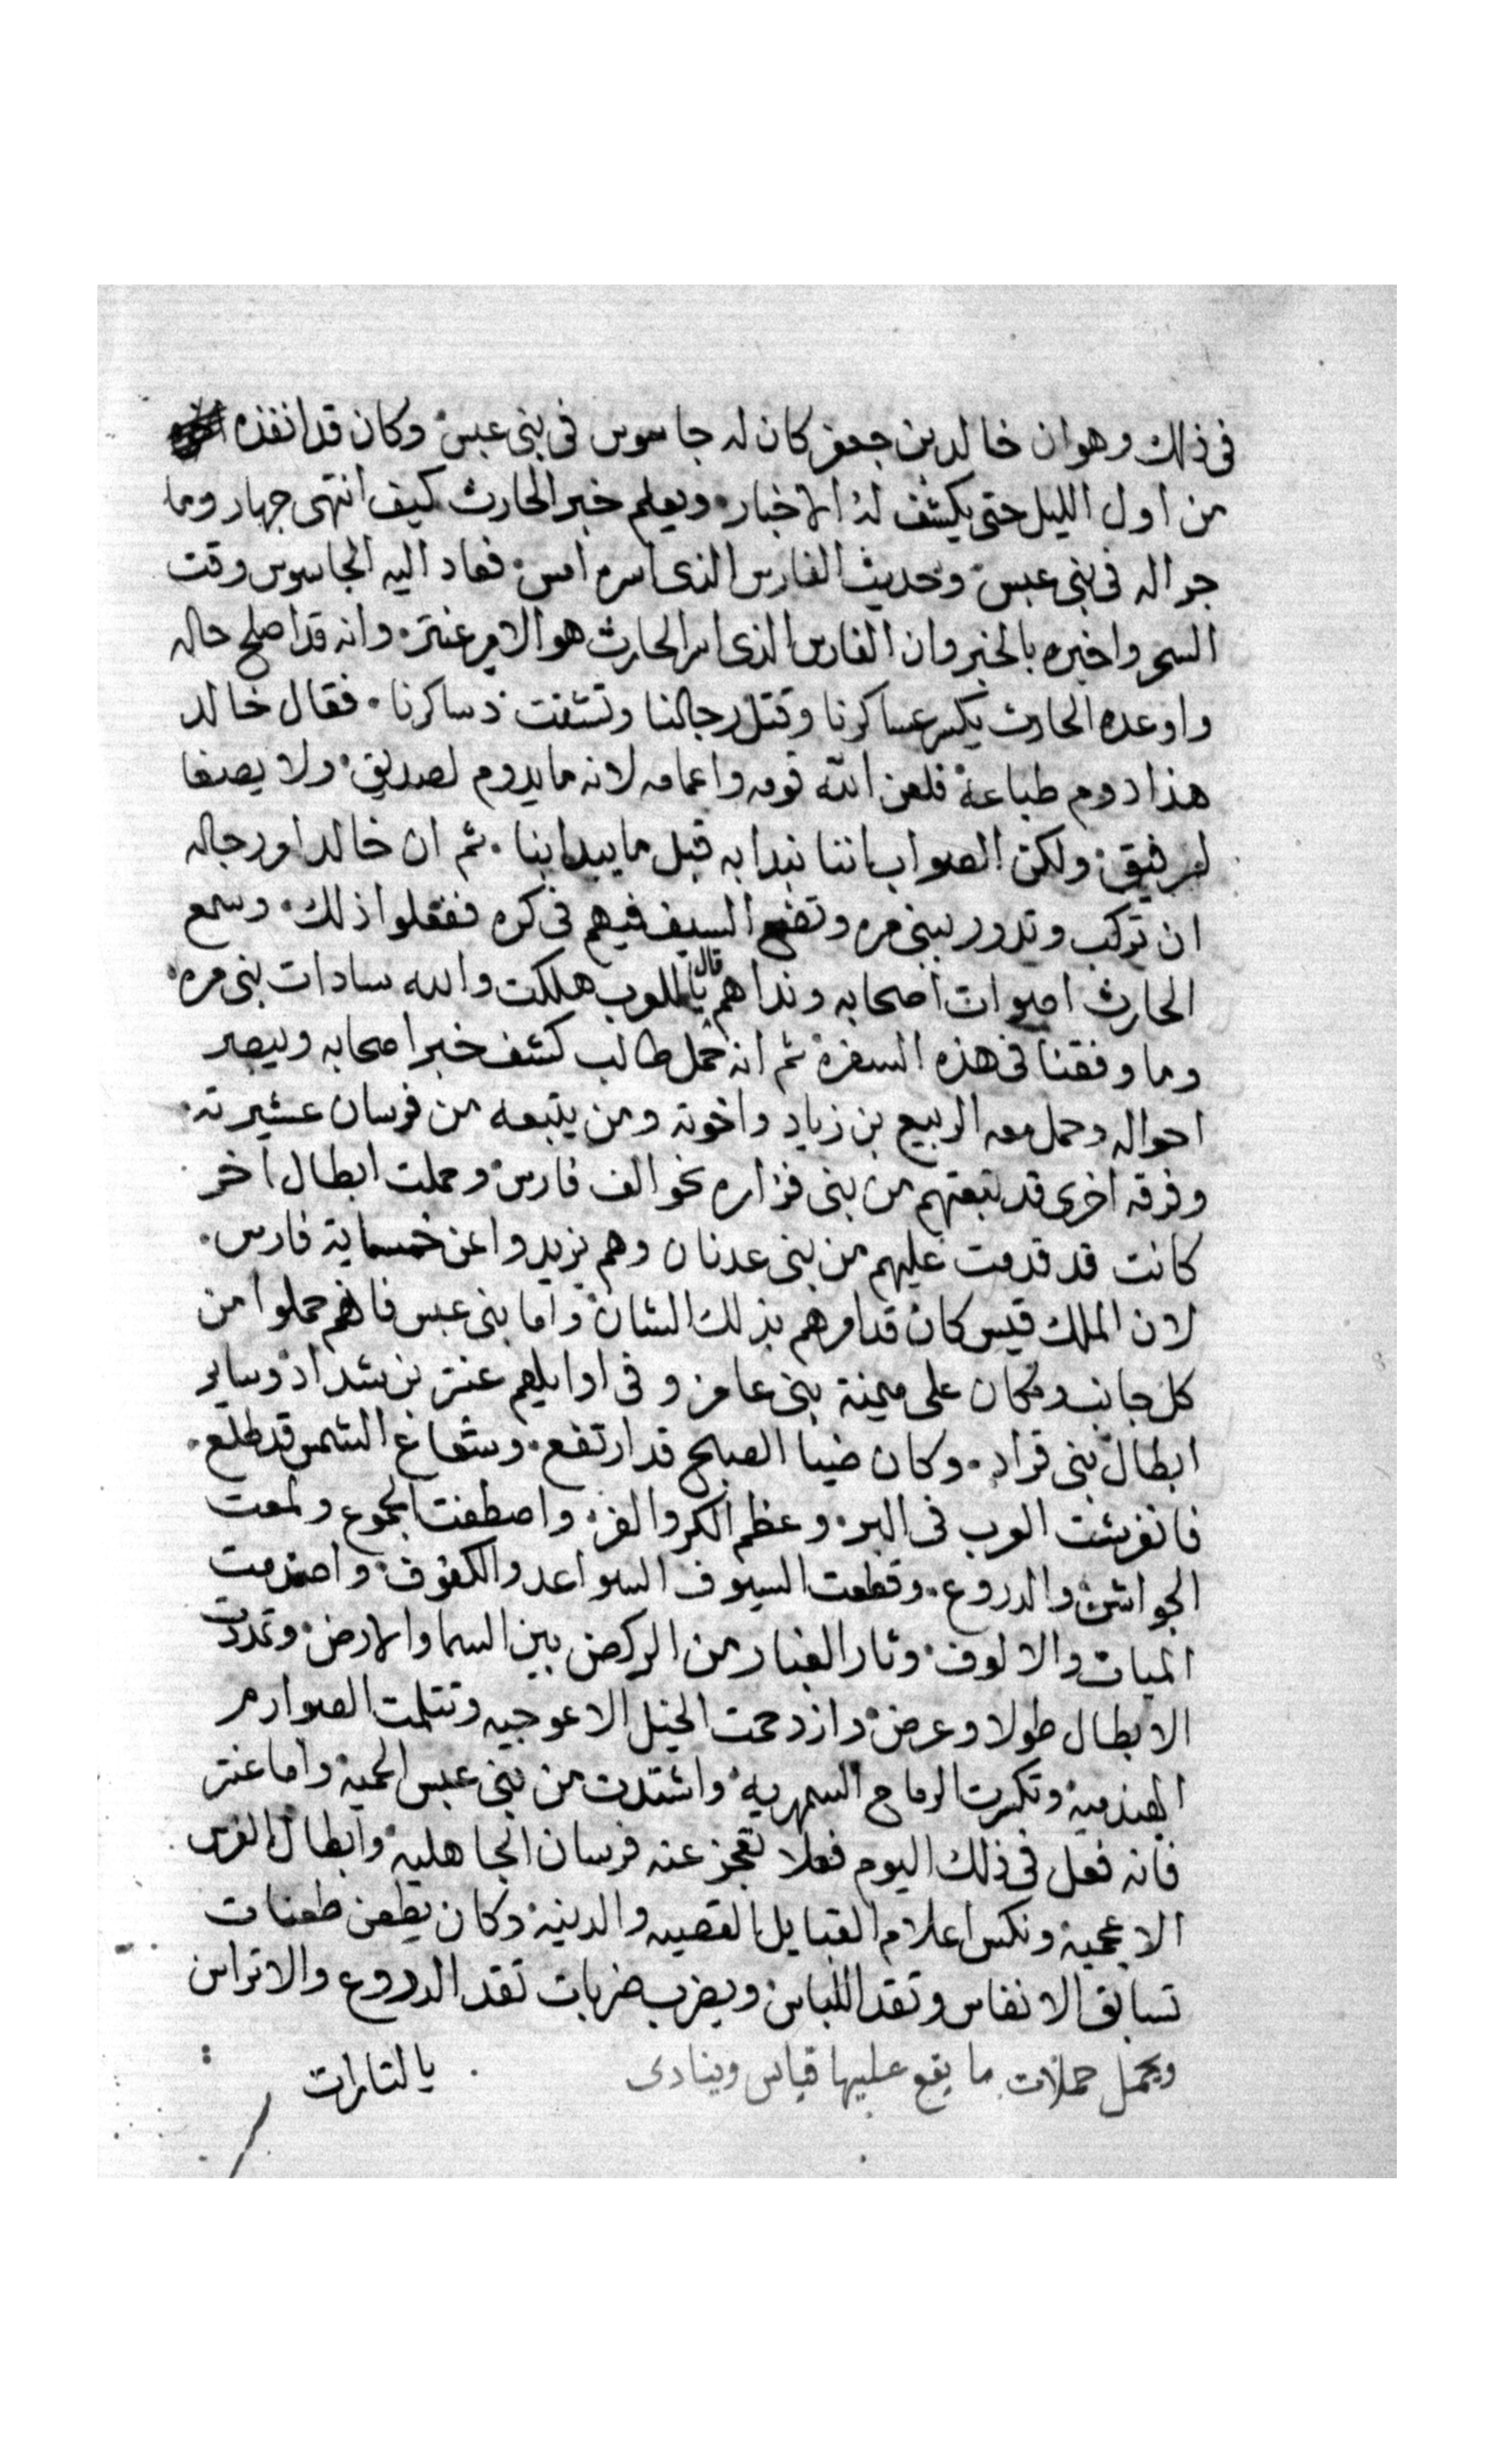 فى ذلك وهو ان خالد بن جعفر كان له جاسوس فى بنى عبس وكان قد انفذه
من اول الليل حتى يكشف له الاخبار ويعلم خبر الحارث كيف انتهى جهار وما
جرا له فى بنى عبس وحديث الفارس الذى اسره امس فعاد اليه الجاسوس وقت
السحر واخبره بالخبر وان الفارس الذى اسر الحارث هو الامير عنتر وانه قد اصلح حاله
واوعده الحارث يكسر عساكرنا وقتل رجالنا وتشتت دساكرنا فقال خالد
هذا دوم طباعة فلعن الله قومه واعمامه لانه ما يدوم لصديق ولا يصفا
لرفيق ولكن الصواب اننا نبدا به قبل ما يبدا بنا ثم ان خالدا ورجاله
ان تركب وتدور ببنى مره وتضع السيف فيهم فى كره ففعلوا ذلك وسمع
الحارث اصوات اصحابه ونداهم قال يا للعرب هلكت والله سادات بنى مره
وما وفقنا فى هذه السفرة ثم انه حمل طالب كشف خبر اصحابه ويبصر
احواله وحمل معه الربيع بن زياد واخوته ومن يتبعه من فرسان عشيرته
وفرقه اخرى قد تبعتهم من بنى فزاره نحو الف فارس وحملت ابطال اخر
كانت قد قدمت عليهم من بنى عدنان وهم يزيدوا عن خمسماية فارس
لان الملك قيس كان قد امرهم بذلك الشان واما بنى عبس فانهم حملوا من
كل جانب ومكان على ميمنة بنى عامر وفى اوايلهم عنتر بن شداد وساير
ابطال بنى قراد وكان ضيا الصبح قد ارتفع وشعاع الشمس قد طلع
فانفرشت العرب فى البر وعظم الكر والفر واصطفت الجموع ولمعت
الجواشن والدروع وقطعت السيوف السواعد والكفوف واصتدمت
الميات والالوف وثار الغبار من الركض بين السما والارض وتمددت
الابطال طولا وعرض وازدحمت الخيل الاعوجيه وتثلمت الصوارم
الهندية وتكسرت الرماح السمهرية واشتدت من بنى عبس الحمية واما عنتر
فانه فعل فى ذلك اليوم فعلا تعجز عنه فرسان الجاهلية وابطال الفرس
الاعجمية ونكس اعلام القبايل القصيه والدنية وكان يطعن طعنات
تسابق الانفاس وتقد اللباس ويضرب ضربات تقد الدروع والاتراس
ويحمل حملات ما يقع عليها قياس وينادى يا لتارات